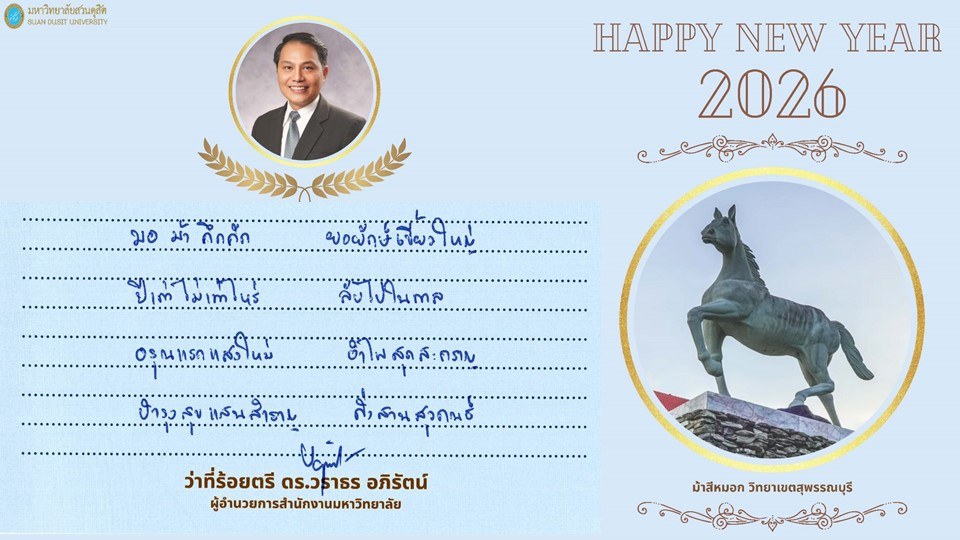 มหาวิทยาลัยสวนดุสิต
SUAN DUSIT UNIVERSITY
HAPPY NEW YEAR
2026
มอ ม้า คึกคัก ยอยักษ์เขี้ยวใหญ่
ปีเก่าไม่เท่าไหร่ ลับไปในกาล
อรุณแรกแสงใหม่ อำไพสุดสะคราญ
บำรุงสุขแสนสำราญ
ว่าที่ร้อยตรี ดร.วราธร อภิรัตน์
ผู้อำนวยการสำนักงานมหาวิทยาลัย
ม้าสีหมอก วิทยาเขตสุพรรณบุรี